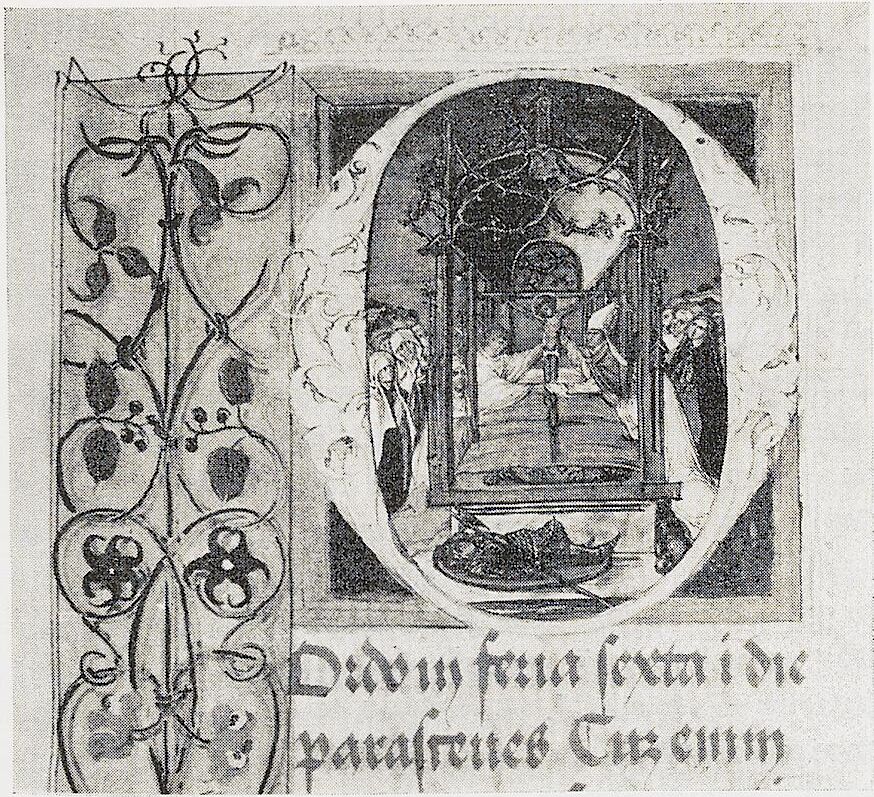 Ordo in feria sexta i die
parasceues Cuz enim